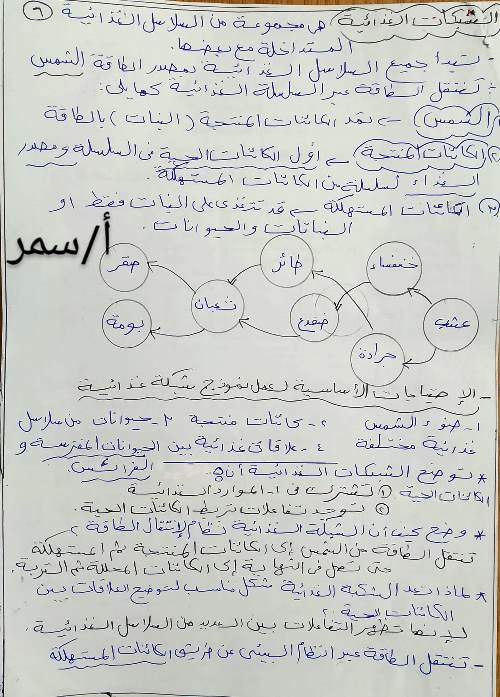 الشبكات الغذائية هي مجموعة من السلاسل الغذائية ٦
المتداخلة مع بعضها.
- تبدأ جميع السلاسل الغذائية بمصدر الطاقة الشمس
- تنتقل الطاقة عبر السلسلة الغذائية كما يلى:
١) الشمس ← تمد الكائنات المنتجة (النبات) بالطاقة
٢) الكائنات المنتجة ← أول الكائنات الحية فى السلسلة ومصدر
الغذاء لسلسلة من الكائنات المستهلكة.
٣) الكائنات المستهلكة ← قد تتغذى على النبات فقط او
النباتات والحيوانات.
أ/سمر
صقر
طائر
خنفساء
ثعبان
ضفدع
عشب
بومة
جرادة
- الإحتياجات الأساسية لعمل نموذج شبكة غذائية
١- ضوء الشمس ٢- كائنات منتجة ٣- حيوانات من سلاسل
غذائية مختلفة ٤- علاقات غذائية بين الحيوانات المفترسة و
الفرائس
* توضح الشبكات الغذائية أن
الكائنات الحية ① تشترك فى الموارد الغذائية
② توجد تفاعلات تربط الكائنات الحية.
* وضح كيف أن الشبكة الغذائية نظام لإنتقال الطاقة ؟
تنتقل الطاقة من الشمس إلى الكائنات المنتجة ثم المستهلكة
حتى تصل فى النهاية إلى الكائنات المحللة ثم التربة.
* لماذا تعد الشبكة الغذائية شكل مناسب لتوضيح العلاقات بين
الكائنات الحية ؟
لأنها تظهر التفاعلات بين العديد من السلاسل الغذائية.
- تنتقل الطاقة عبر النظام البيئى عن طريق الكائنات المستهلكة